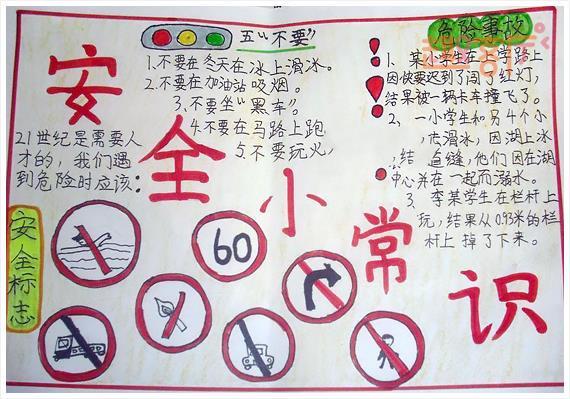 安全小常识
五“不要”
1.不要在冬天在冰上滑冰。
2.不要在加油站吸烟。
3.不要坐“黑车”。
4.不要在马路上跑
5.不要玩火,
21世纪是需要人
才的，我们遇
到危险时应该:
危险事故
1、某小学生在上学路上
因快要迟到了闯了红灯,
结果被一辆卡车撞飞了。
2、一小学生和另4个小
滑冰，因湖上冰
结 缝,他们因在湖
中心并在一起而溺水。
3、李某学生在栏杆上
玩,结果从0.93米的栏
杆上掉了下来。
安全标志
60